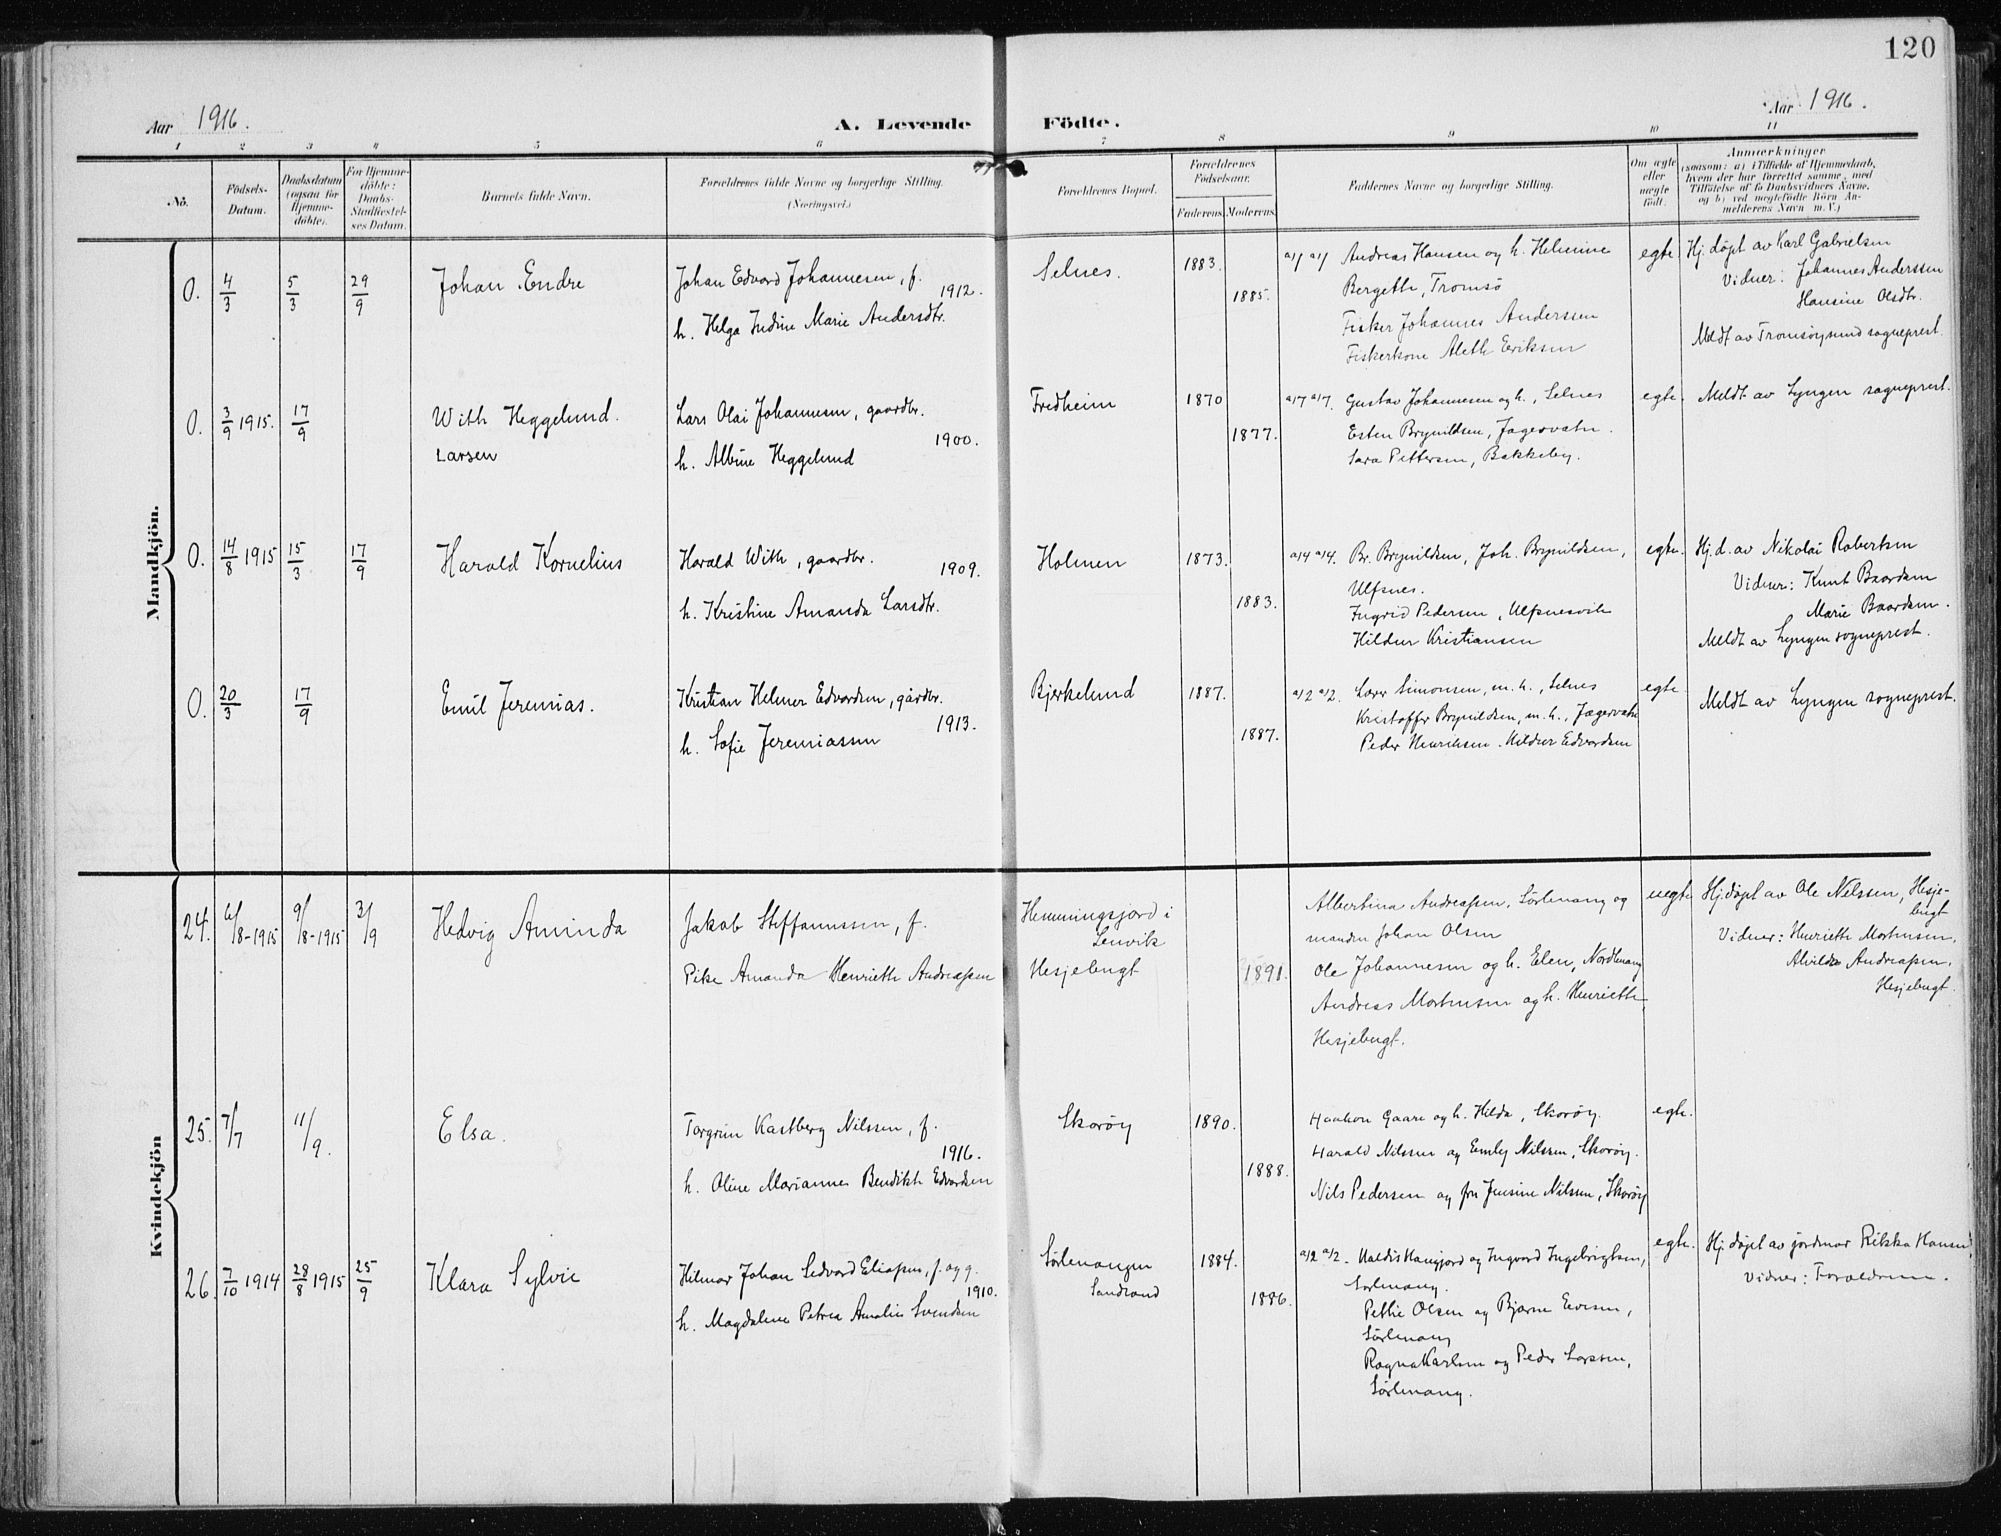 120
Aar 1916.
A. Levende Födte.
Aar 1916.
1 2 3 4 5 6 7 8 9 10 11
No.
Födsels-Datum.
Daabsdatum (ogsaa for Hjemme-döbte).
For Hjemme-döbte: Daabs-Stadfæstel-ses Datum.
Barnets fulde Navn.
Forældrenes fulde Navne og borgerlige Stilling.
(Næringsvei.)
Forældrenes Bopæl.
Forældrenes Födselsaar.
Faderens. Moderens.
Faddernes Navne og borgerlige Stilling.
Om ægte eller uægte födt.
Anmærkninger
(saasom: a) i Tilfælde af Hjemmedaab,
hvem der har forrettet samme, med
Tilföielse af to Daabsvidners Navne,
og b) ved uægtefödte Börn An-
melderens Navn m. V.)
Mandkjön.
0. 4/3 5/3 29/9 Johan Endre
Johan Edvard Johannesen, f.
1912.
h. Helga Indine Marie Andersdtr.
Selnes. 1883. 1885.
a/1 a/1 Andreas Hansen og h. Helmine
Bergeth, Tromsö
Fisker Johannes Anderssen
Fiskerkone Aleth Eriksen
egte
Hj. døpt av Karl Gabrielsen
Vidner: Johannes Anderssen
Hansine Olsdtr.
Meldt av Tromsøysund sogneprest.
0. 3/9 1915. 17/9 With Heggelund.
Larsen
Lars Olai Johannesen, gaardbr.
1900.
h. Albine Heggelund
Fredheim 1870 1877.
a/7 a/7. Gustav Johannesen og h., Selnes
Esten Brynildsen, Jagervatn.
Sara Pettersen, Bakkeby.
egte.
Meldt av Lyngen sogneprest.
0. 14/8 1915 15/3 17/9 Harald Kornelius
Harald With, gaardbr.
1909.
h. Kristine Amanda Larsdtr.
Holmen 1873. 1883.
a/4 a/4. Br. Brynildsen, Joh. Brynildsen,
Ulfsnes.
Ingrid Pedersen, Ulfsnesvik
Hildur Kristiansen
egte.
Hj. d. av Nikolai Robertsen
Vidner: Knut Baardsen
Marie Baardsen.
Meldt av Lyngen sogneprest.
0. 20/3 17/9 Emil Jeremias.
Kristian Helmer Edvardsen, gårdbr.
1913.
h. Sofie Jeremiassen
Bjerkelund 1887. 1887.
a/2 a/2. Lars Simonsen, m. h., Selnes
Kristoffer Brynildsen, m. h., Jægervatn
Peder Henriksen. Hildur Edvardsen
egte.
Meldt av Lyngen sogneprest.
Kvindekjön
24. 6/8-1915 9/8-1915 3/9 Hedvig Aminda
Jakob Steffanussen, f.
Pike Amanda Henriette Andreassen
Hemmingsjord i
Lenvik
Hesjebugt
1891.
Albertina Andreassen, Sörlenang og
manden Johan Olsen
Ole Johannesen og h. Elen, Nordlenang
Andreas Mortensen og h. Henriette,
Hesjebugt.
uegte
Hj. døpt av Ole Nelssen, Hesje-
bugt
Vidner: Henriette Mortensen,
Alvilde Andreassen,
Hesjebugt.
25. 7/7 11/9. Elsa.
Torgrim Kastberg Nilssen, f.
1916.
h. Oline Marianne Benedikte Edvardsen
Skorøy 1890. 1888.
Haakon Gaare og h. Hilda, Skorøy.
Harald Nilssen og Emly Nilssen, Skorøy.
Nils Pedersen og fru Jensine Nilssen, Skorøy
egte.
26. 7/10 1914 28/8 1915 25/9 Klara Sylvie
Hilmar Johan Sedvard Eliassen, f. og g.
1910.
h. Magdalene Petrea Amalie Svendsen
Sørlenangen
Sandland
1884. 1886.
a/2 a/2. Valdis Hansjord og Ingvard Ingebrigtsen,
Sørlenang.
Pettie Olsen og Bjarne Eversen,
Sørlenang
Ragna Karlsen og Peder Larssen,
Sørlenang.
egte.
Hj. døpt av jordmor Rikka Hansen,
Vidner: Forældrene.